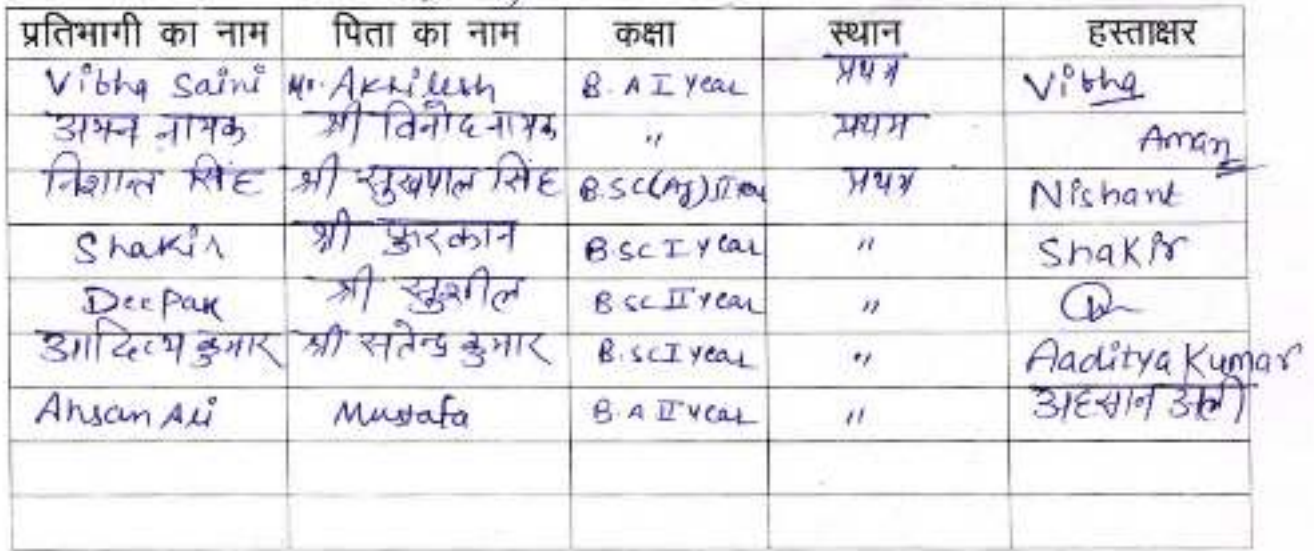 प्रतिभागी का नाम पिता का नाम कक्षा स्थान हस्ताक्षर
Vibha Saini Mr. Akhilesh B. A I Year प्रथम Vibha
अमन नायक श्री विनोद नायक " प्रथम Aman
निशान्त सिंह श्री सुखपाल सिंह B.SC(Ag) II Year प्रथम Nishant
Shakir श्री फुरकान B.SC I Year " Shakir
Deepak श्री सुशील B SC II Year "
आदित्य कुमार श्री सतेन्द्र कुमार B.SC I Year " Aaditya Kumar
Ahsan Ali Mustafa B. A II Year " अहसान अली